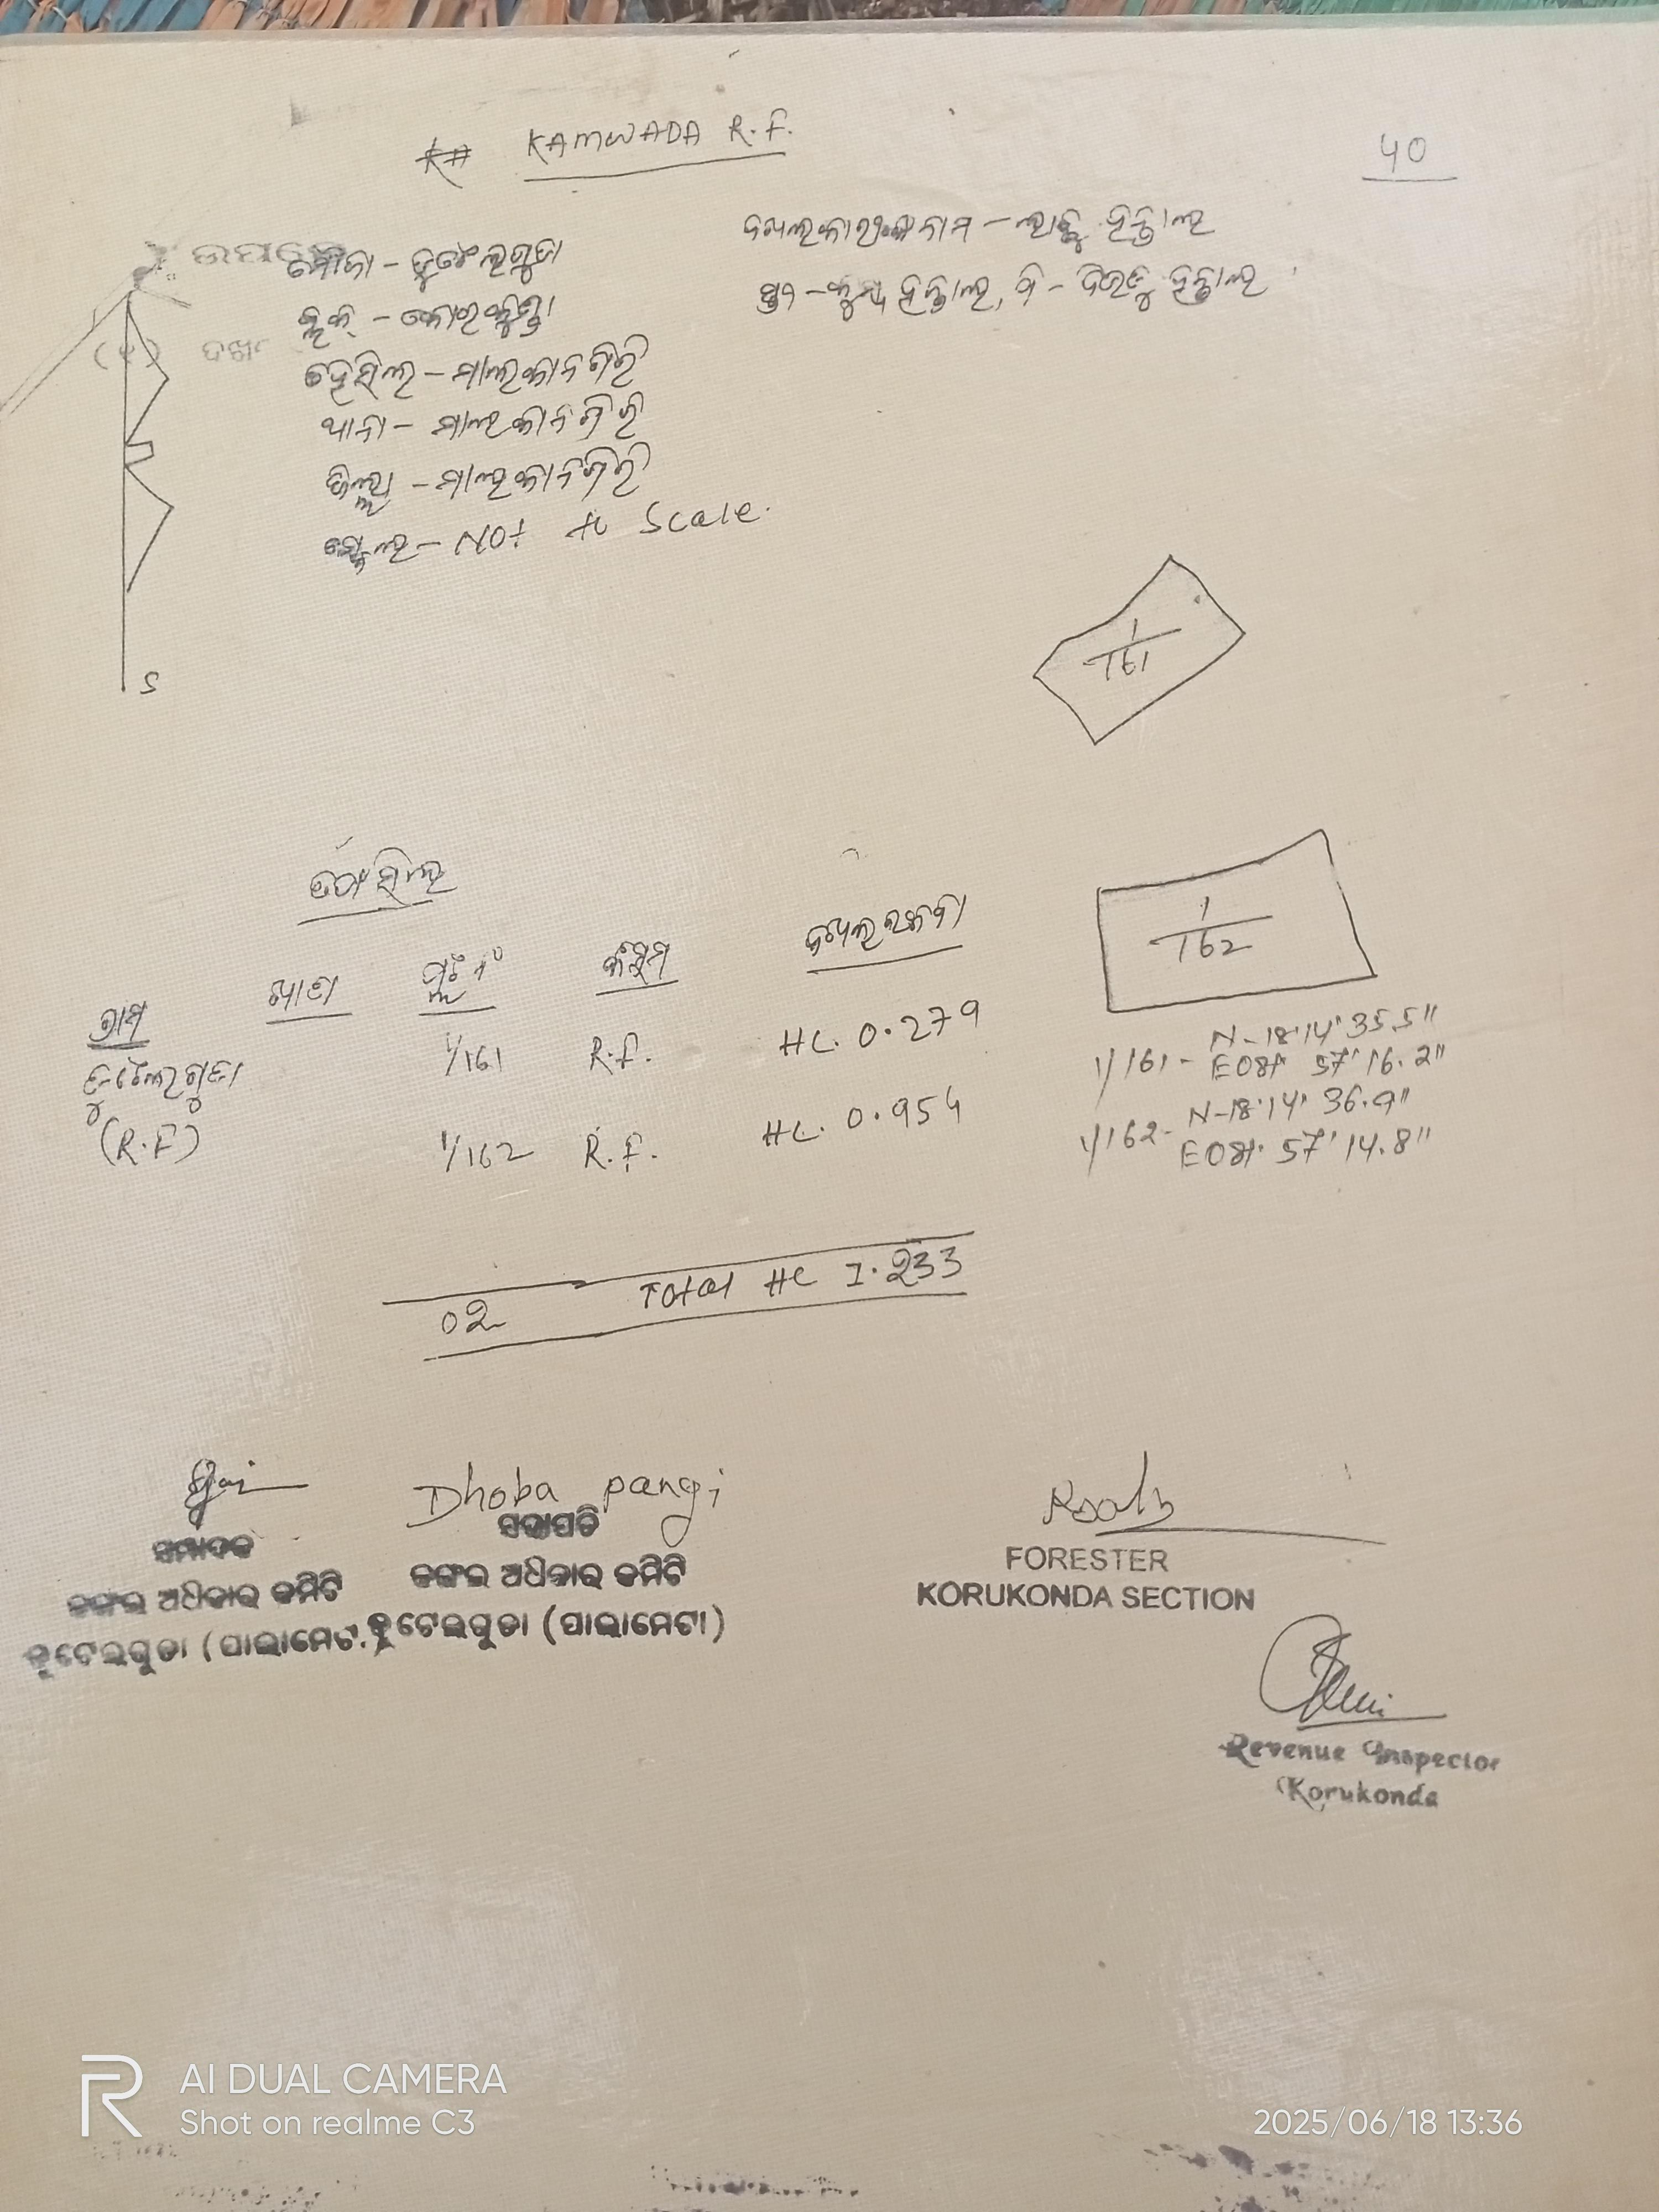 KAMWADA R.F.
40
ମୌଜା -
ବ୍ଲକ୍ - କୋରକୁଣ୍ଡା
ତହସିଲ - ମାଲକାନଗିରି
ଥାନା - ମାଲକାନଗିରି
ଜିଲ୍ଲା - ମାଲକାନଗିରି
ସ୍କେଲ - Not to Scale.
ଦଖଲକାରୀଙ୍କ ନାମ - ହନ୍ତାଲ
ହନ୍ତାଲ, ପି - ହନ୍ତାଲ
(୧) ଦଖ
S
1/161
1/162
ତଫସିଲ
ଗ୍ରାମ ଖାତା ପ୍ଲଟ ନଂ କିସମ ଦଖଲ ରକବା
1/161 R.F. HC. 0.279
(R.F) 1/162 R.F. HC. 0.954
1/161 - N-18°14' 35.5"
E081° 57' 16.2"
1/162 - N-18°14' 36.9"
E081° 57' 14.8"
02 Total HC 1.233
Dhoba pangi
ସମ୍ପାଦକ
ଜଙ୍ଗଲ ଅଧିକାର କମିଟି
ଟେଲଗୁଡା (ପାଲାମେଟ
ସଭାପତି
ଜଙ୍ଗଲ ଅଧିକାର କମିଟି
ଟେଲଗୁଡା (ପାଲାମେଟା)
FORESTER
KORUKONDA SECTION
Revenue Inspector
Korukonda
AI DUAL CAMERA
Shot on realme C3
2025/06/18 13:36